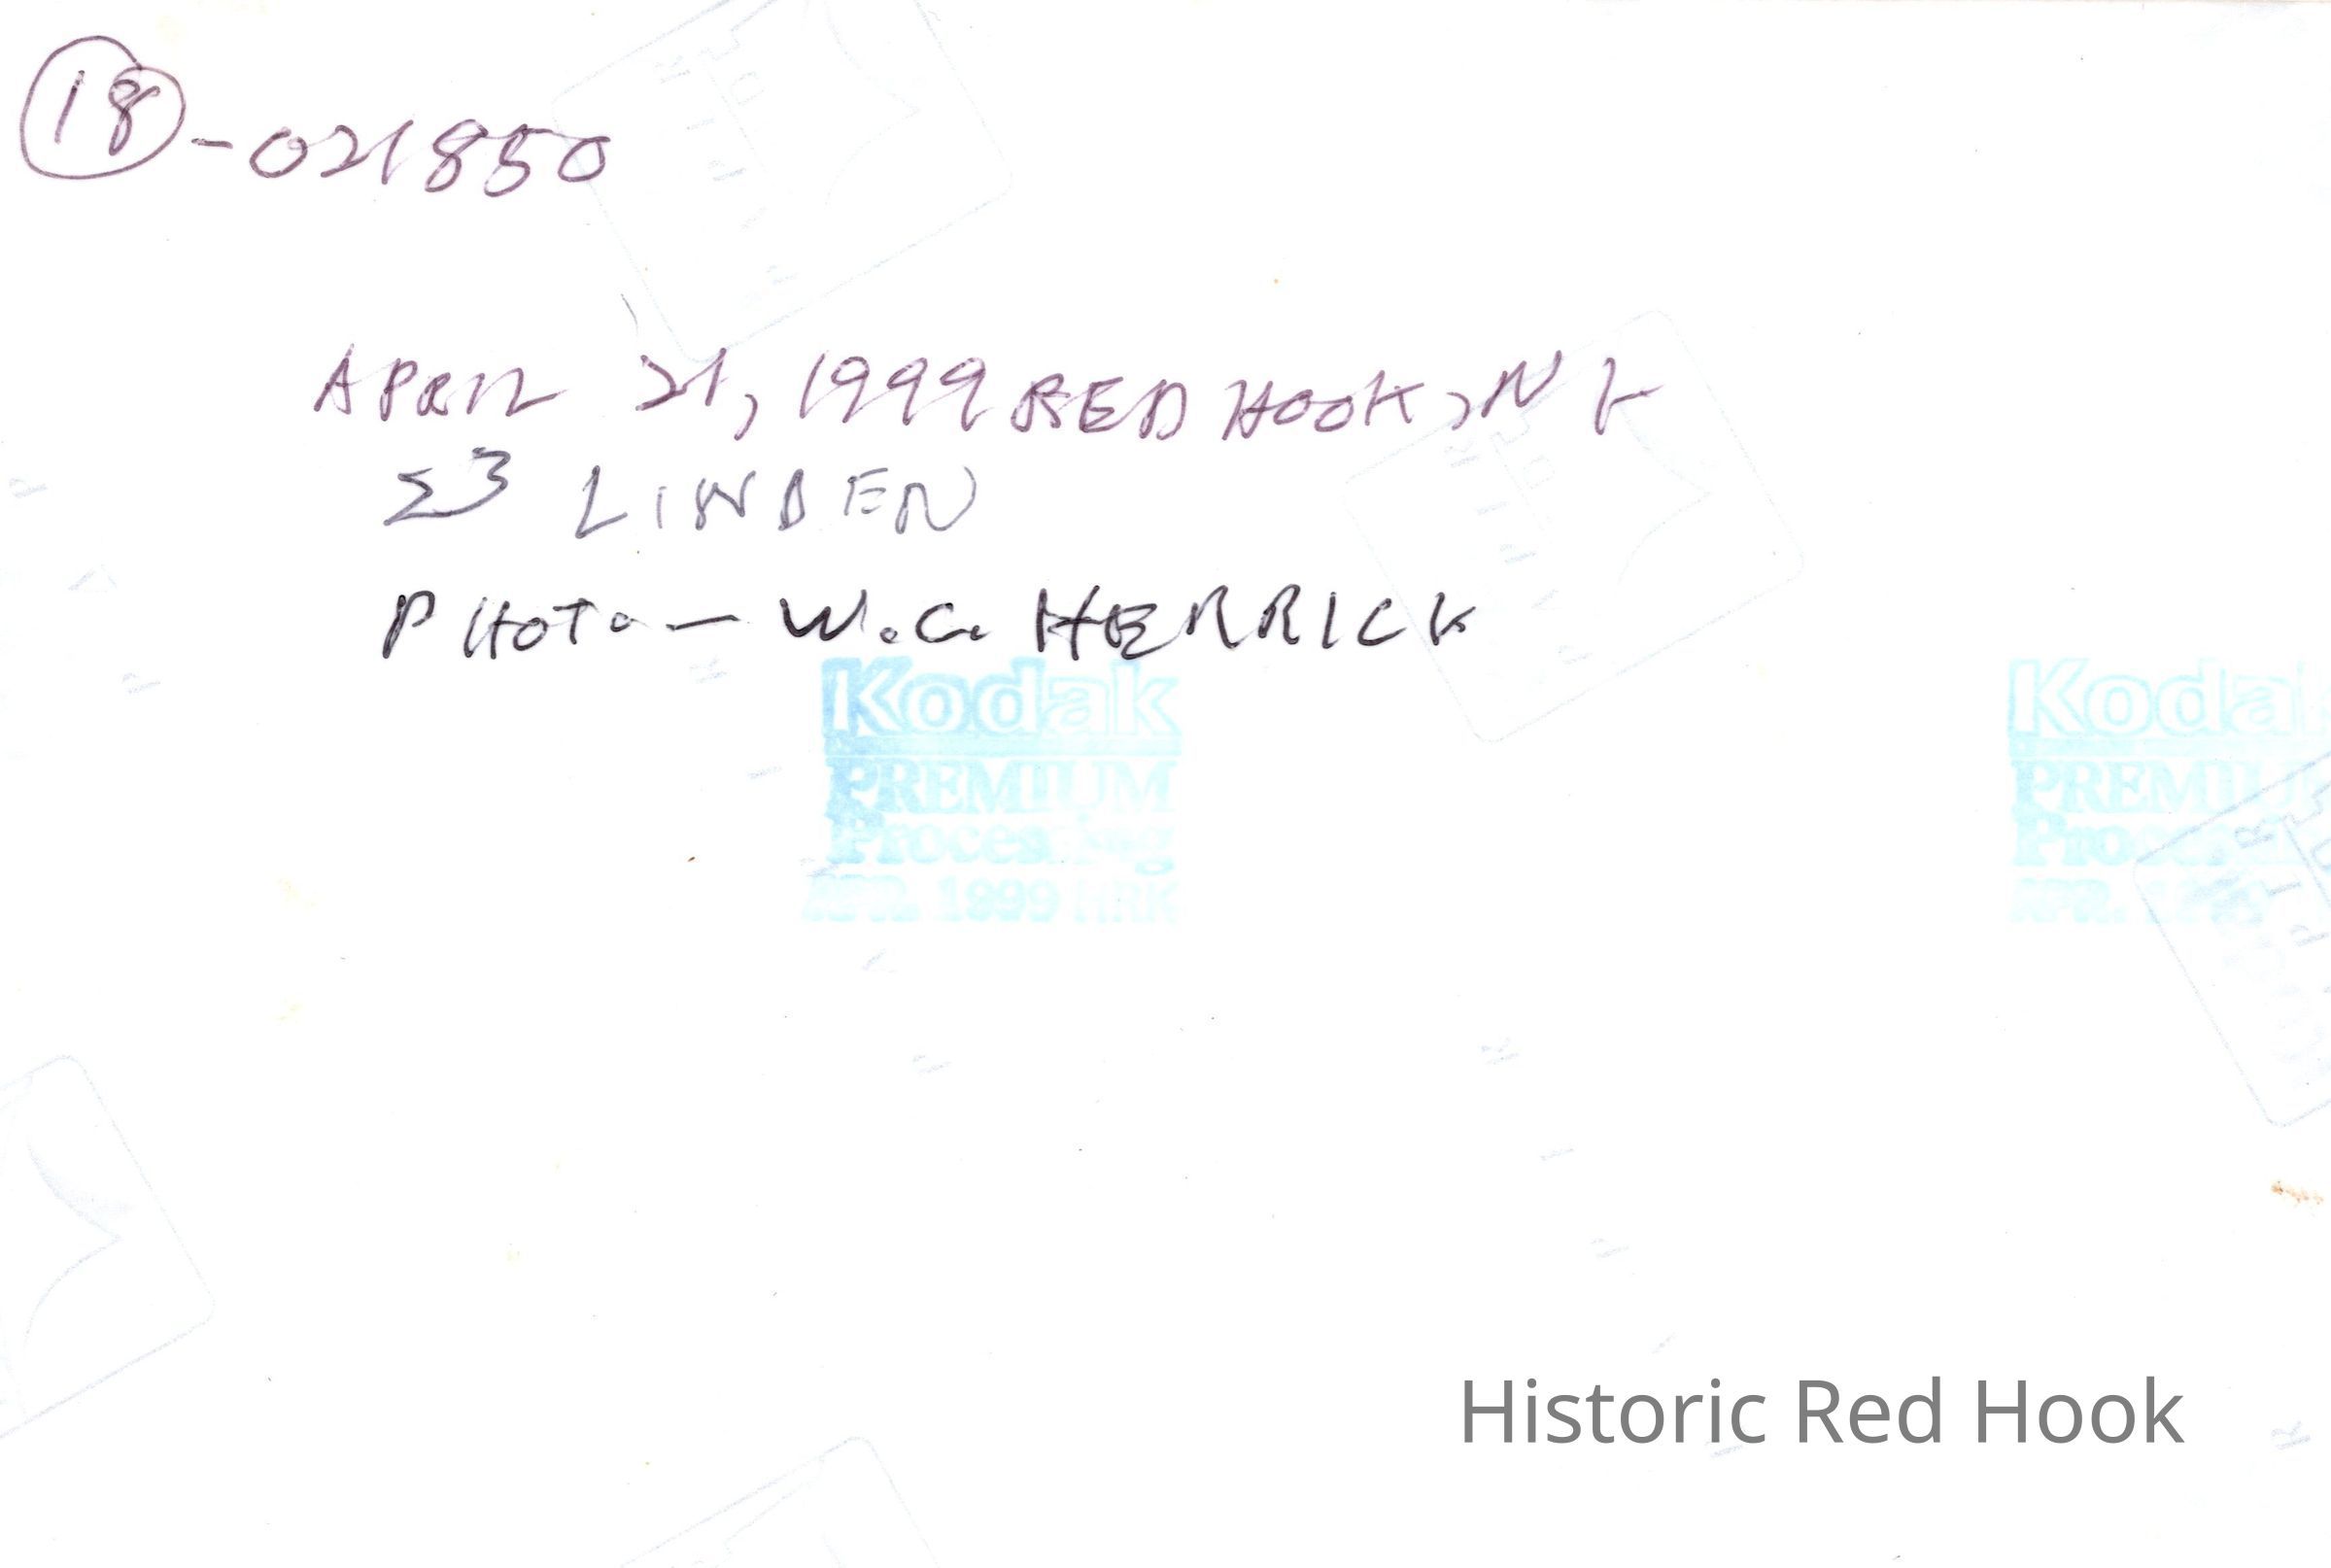 18-021850
APRIL 21, 1999 RED HOOK, NY
23 LINDEN
PHOTO - W.C. HERRICK
Kodak
PREMIUM
Processing
APR. 1999 HRK
Kodak
PREMIU
Proces
APR. 1999
Historic Red Hook